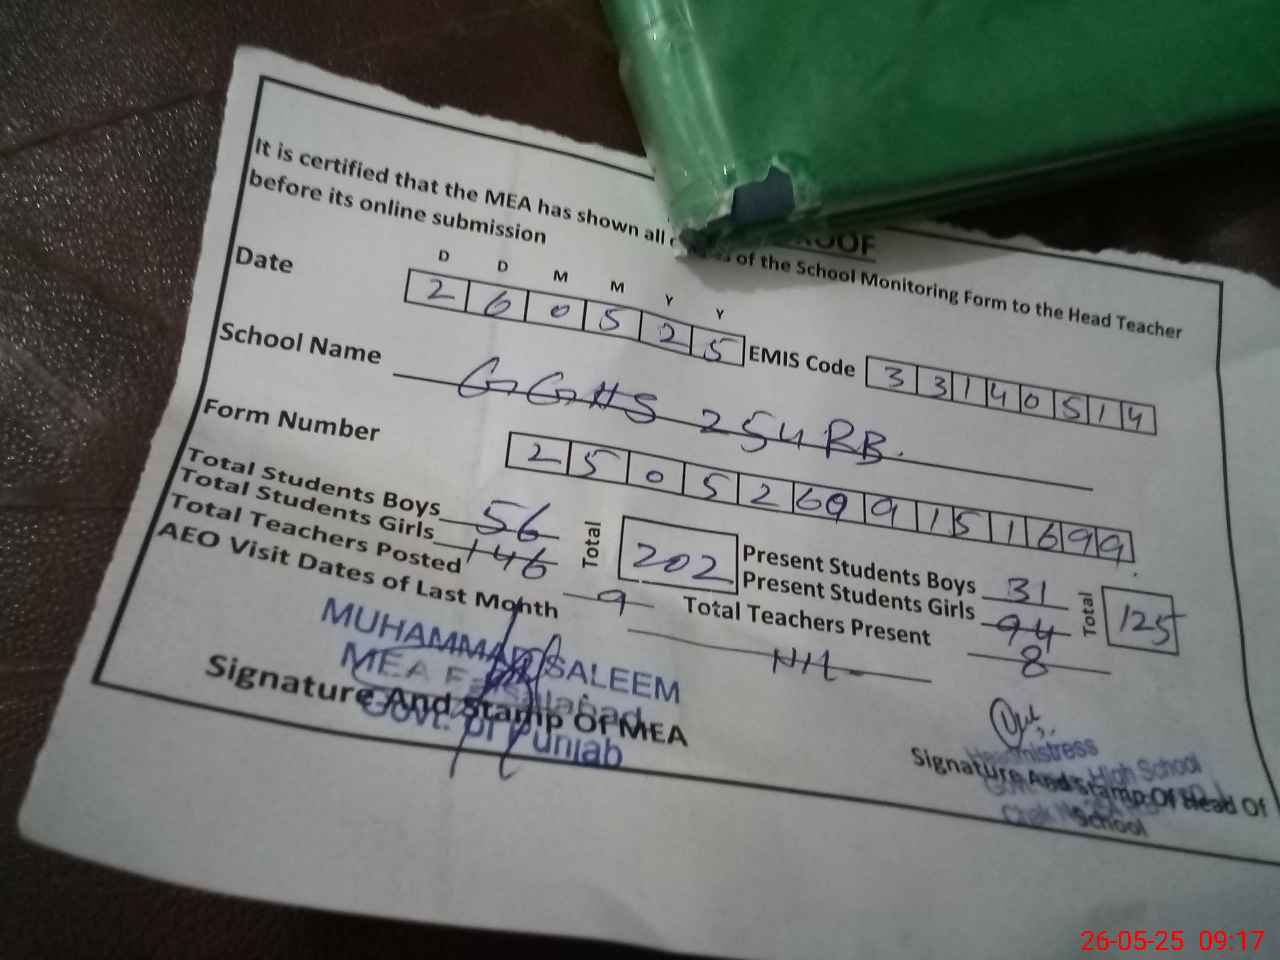 ROOF
It is certified that the MEA has shown all of the School Monitoring Form to the Head Teacher
before its online submission
D D M M Y Y
Date 2 6 0 5 2 5 EMIS Code 3 3 1 4 0 5 1 4
School Name GGHS 254 RB.
Form Number 2 5 0 5 2 6 9 9 1 5 1 6 9 9
Total Students Boys 56 Total 202 Present Students Boys 31 Total 125
Total Students Girls 146 Present Students Girls 94
Total Teachers Posted 9 Total Teachers Present 8
AEO Visit Dates of Last Month Nil
MUHAMMAD SALEEM
MEA Faisalabad
Govt. of Punjab
Signature And Stamp Of MEA
Headmistress
High School
Signature And Stamp Of Head Of
School
Chak
26-05-25 09:17